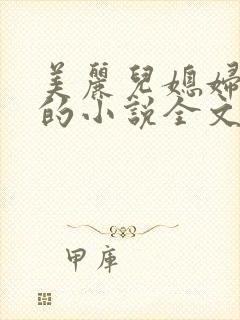 美麗兒媳婦
的小說全文
甲庫